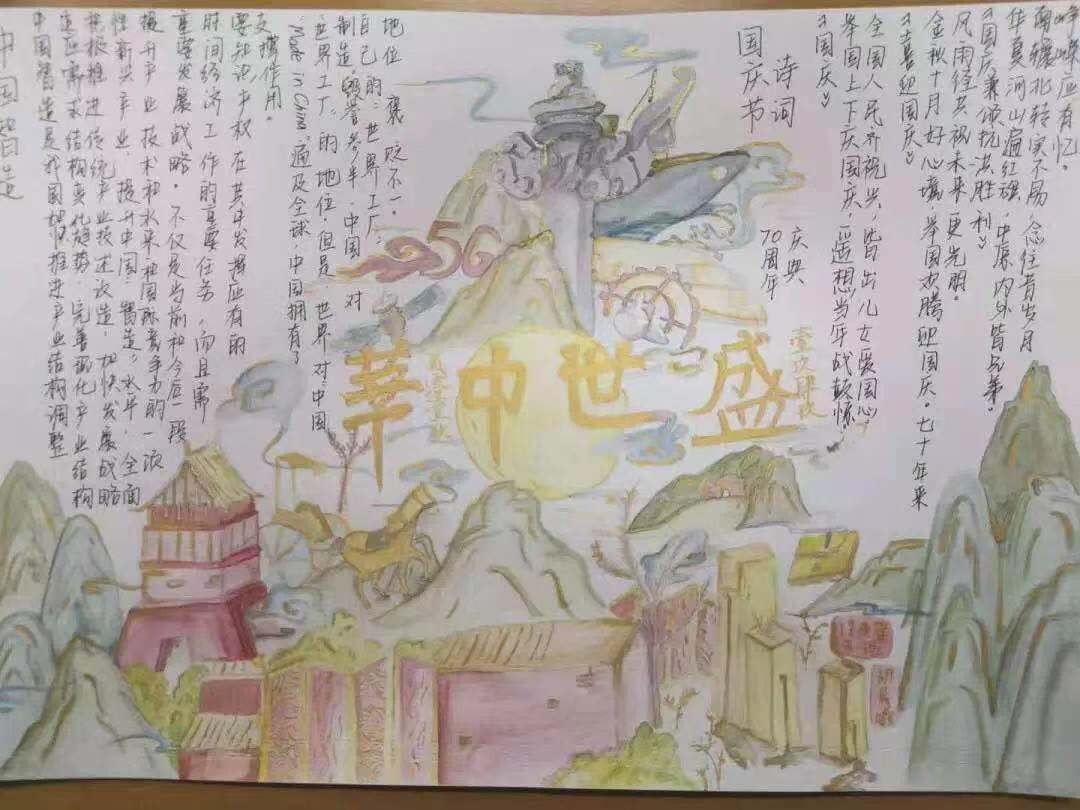 中国智造
中国智造是我国加快推进产业结构调整
适应需求结构变化趋势,完善现代产业结构
积极推进传统产业技术改造,加快发展战略
性新兴产业,提升中国"智造"水平,全面
提升产业技术和水来和国际竞争力的一项
重要发展战略。不仅是当前和今后一段
时间经济工作的重要任务,而且需
要知识产权在其中发挥应有的
支撑作用。
"Made in China"遍及全球,中国拥有了
世界工厂"的地位,但是,世界对"中国
制造"毁誉参半,中国对
自己的"世界工厂"
地位 褒贬不一。
5G
盛世中华
壹玖肆玖
贰零壹玖
国庆节
诗词
70周年
庆典
《国庆》
举国上下庆国庆,遥想当年战鼓惊
全国人民齐祝兴,皆出儿女爱国心
《喜迎国庆》
金秋十月好心境,举国欢腾迎国庆。七十年来
风雨经共祝未来更光明。
《国庆兼颂抗洪胜利》
华夏河山遍红,中原内外皆兄弟。
南辕北转实不易,念往昔岁月
峥嵘应有忆。